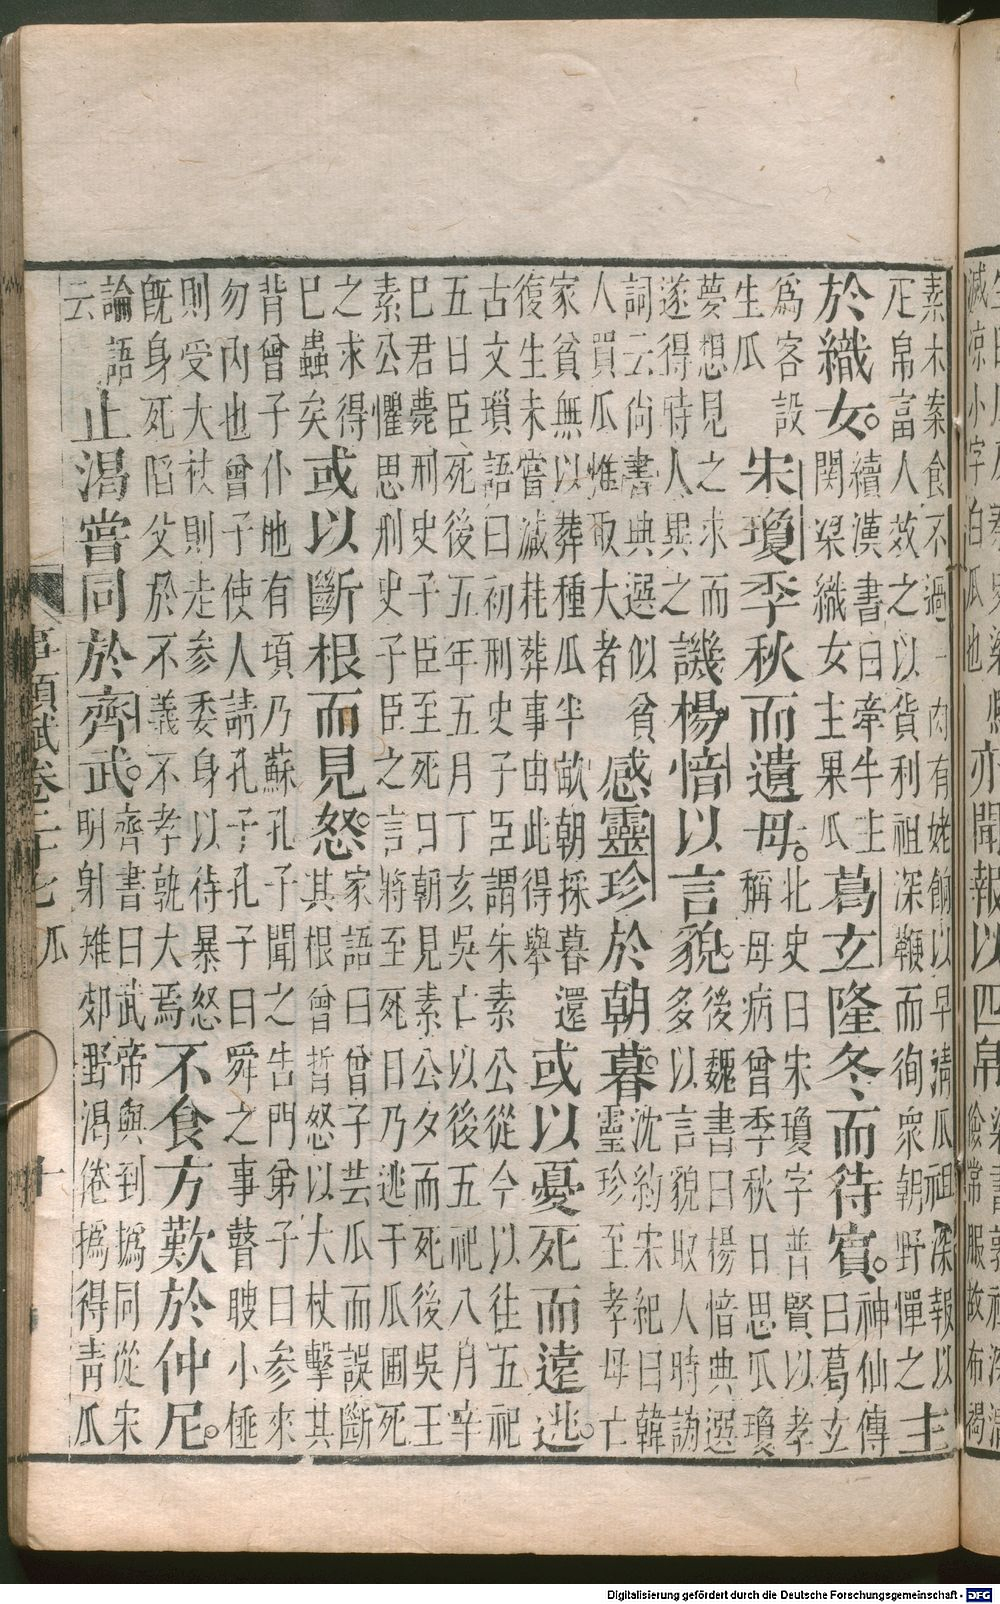 素木案食不過一肉有姥餉以早清瓜祖深報以
疋帛富人效之以貨利祖深鞭而徇衆朝野憚之
主
於織女。
續漢書曰牽牛主
關梁織女主果瓜
葛玄隆冬而待賓。
神仙傳
曰葛玄
爲客設
生瓜
宋瓊季秋而遺母。
北史曰宋瓊字普賢以孝
稱母病曾季秋日思瓜瓊
夢想見之求而
遂得時人異之
譏楊愔以言貌。
後魏書曰楊愔典選
多以言貌取人時謗
詞云尚書典選似貧
人買瓜惟取大者
感靈珍於朝暮。
沈約宋紀曰韓
靈珍至孝母亡
家貧無以葬種瓜半畝朝採暮還
復生未嘗減耗葬事由此得舉
或以憂死而遠逃。
古文瑣語曰初刑史子臣謂朱素公從今以往五祀
五日臣死後五年五月丁亥吳亡以後五祀八月辛
巳君薨刑史子臣至死日朝見素公夕而死後吳王
素公懼思刑史子臣之言將至死日乃逃于瓜圃死
之求得
巳蟲矣
或以斷根而見怒。
家語曰曾子芸瓜而誤斷
其根曾晳怒以大杖擊其
背曾子仆地有項乃蘇孔子聞之告門弟子曰參來
勿內也曾子使人請孔子孔子曰舜之事瞽瞍小棰
則受大杖則走參委身以待暴怒
既身死陷父於不義不孝孰大焉
不食方歎於仲尼。
論語
云
止渴嘗同於齊武。
齊書曰武帝與到撝同從宋
明射雉郊野渴倦撝得青瓜
事類賦卷二十七 瓜 十
亦聞報以四帛
儉常服故布褐
減涼小字白瓜也
Digitalisierung gefördert durch die Deutsche Forschungsgemeinschaft - DFG